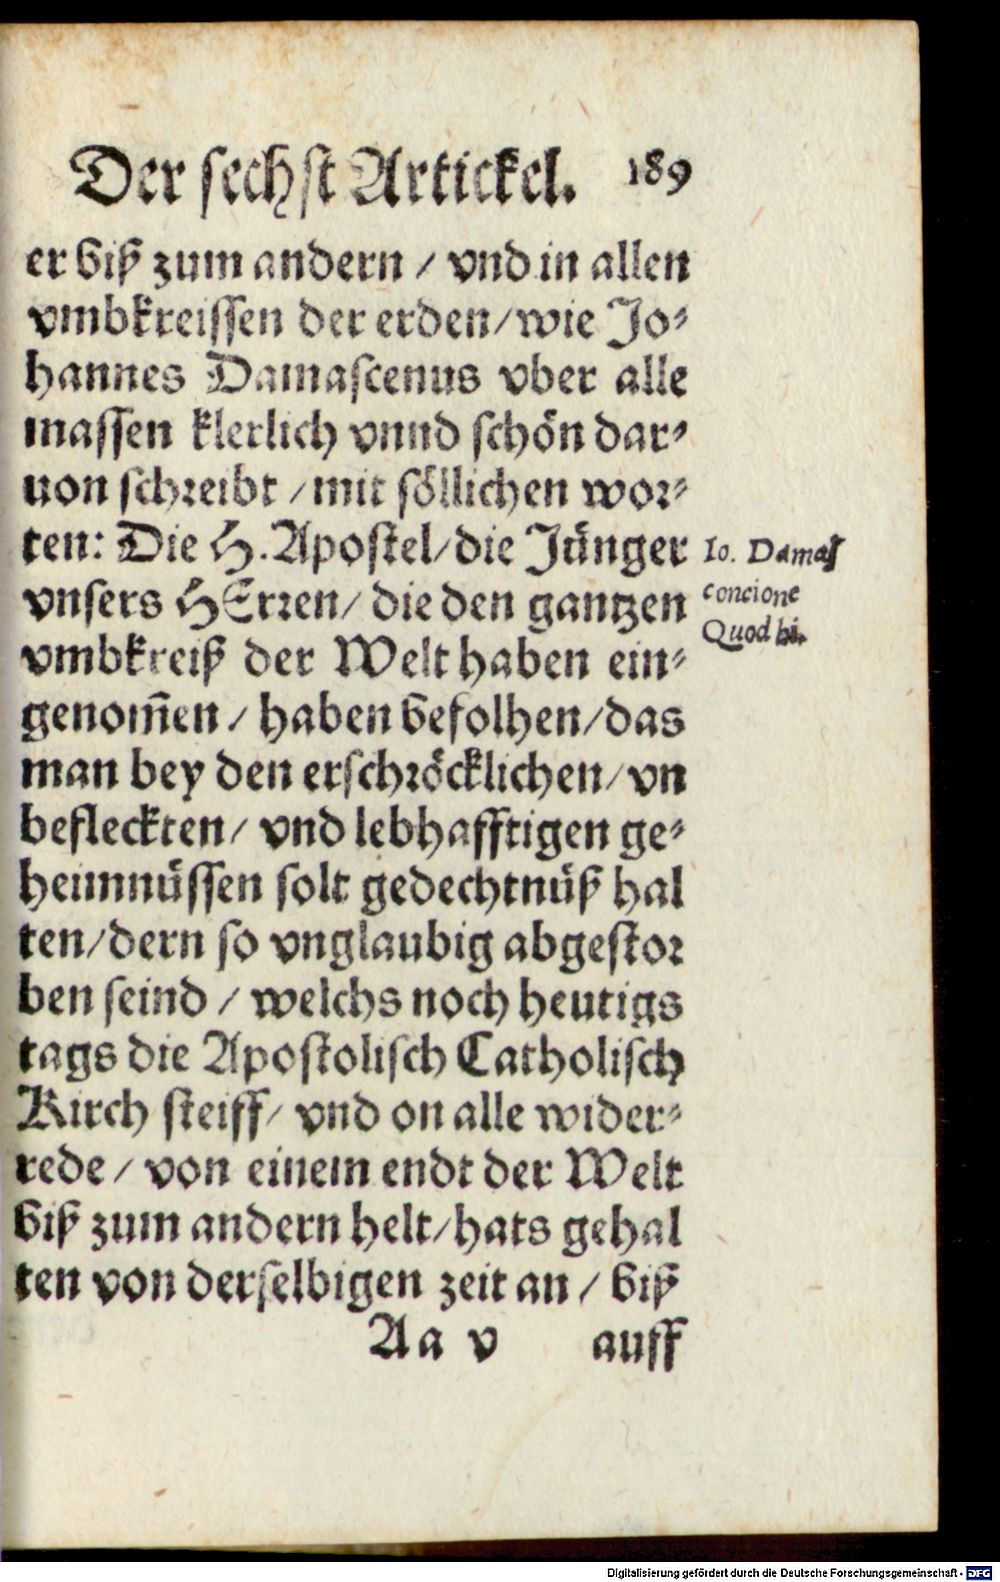 Der sechst Artickel. 189
er biß zum andern / vnd in allen
vmbkreissen der erden/wie Jo⸗
hannes Damascenus vber alle
massen klerlich vnnd schön dar⸗
uon schreibt /mit söllichen wor⸗
ten: Die H. Apostel/die Jünger
vnsers HErren/ die den gantzen
vmbkreiß der Welt haben ein⸗
genom̃en / haben befolhen/das
man bey den erschröcklichen/ vn
befleckten/ vnd lebhafftigen ge⸗
heimnüssen solt gedechtnüß hal
ten/dern so vnglaubig abgestor
ben seind / welchs noch heutigs
tags die Apostolisch Catholisch
Kirch steiff/ vnd on alle wider⸗
rede / von einem endt der Welt
biß zum andern helt/hats gehal
ten von derselbigen zeit an / biß
Aa v auff
Io. Damas
concione
Quod hi.
Digitalisierung gefördert durch die Deutsche Forschungsgemeinschaft - DFG